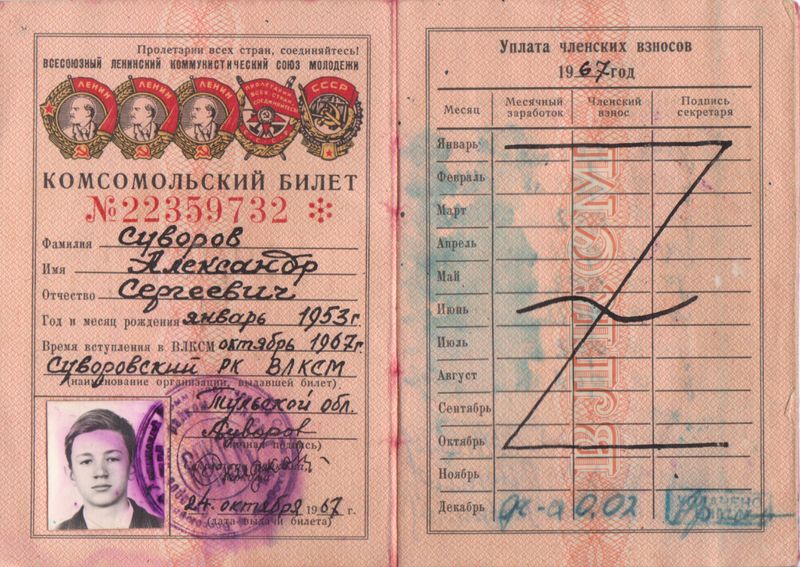 Пролетарии всех стран, соединяйтесь!
ВСЕСОЮЗНЫЙ ЛЕНИНСКИЙ КОММУНИСТИЧЕСКИЙ СОЮЗ МОЛОДЕЖИ
ЛЕНИН ЛЕНИН ЛЕНИН ПРОЛЕТАРИИ ВСЕХ СТРАН, СОЕДИНЯЙТЕСЬ СССР
КОМСОМОЛЬСКИЙ БИЛЕТ
№22359732
Фамилия Суворов
Имя Александр
Отчество Сергеевич
Год и месяц рождения январь 1953г.
Время вступления в ВЛКСМ октябрь 1967г.
Суворовский РК ВЛКСМ
(наименование организации, выдавшей билет)
Тульской обл.
(личная подпись)
24 октября 1967 г.
(дата выдачи билета)
Уплата членских взносов
1967 год
Месяц Месячный заработок Членский взнос Подпись секретаря
Январь
Февраль
Март
Апрель
Май
Июнь
Июль
Август
Сентябрь
Октябрь
Ноябрь
Декабрь 0.02
ВЛКСМ